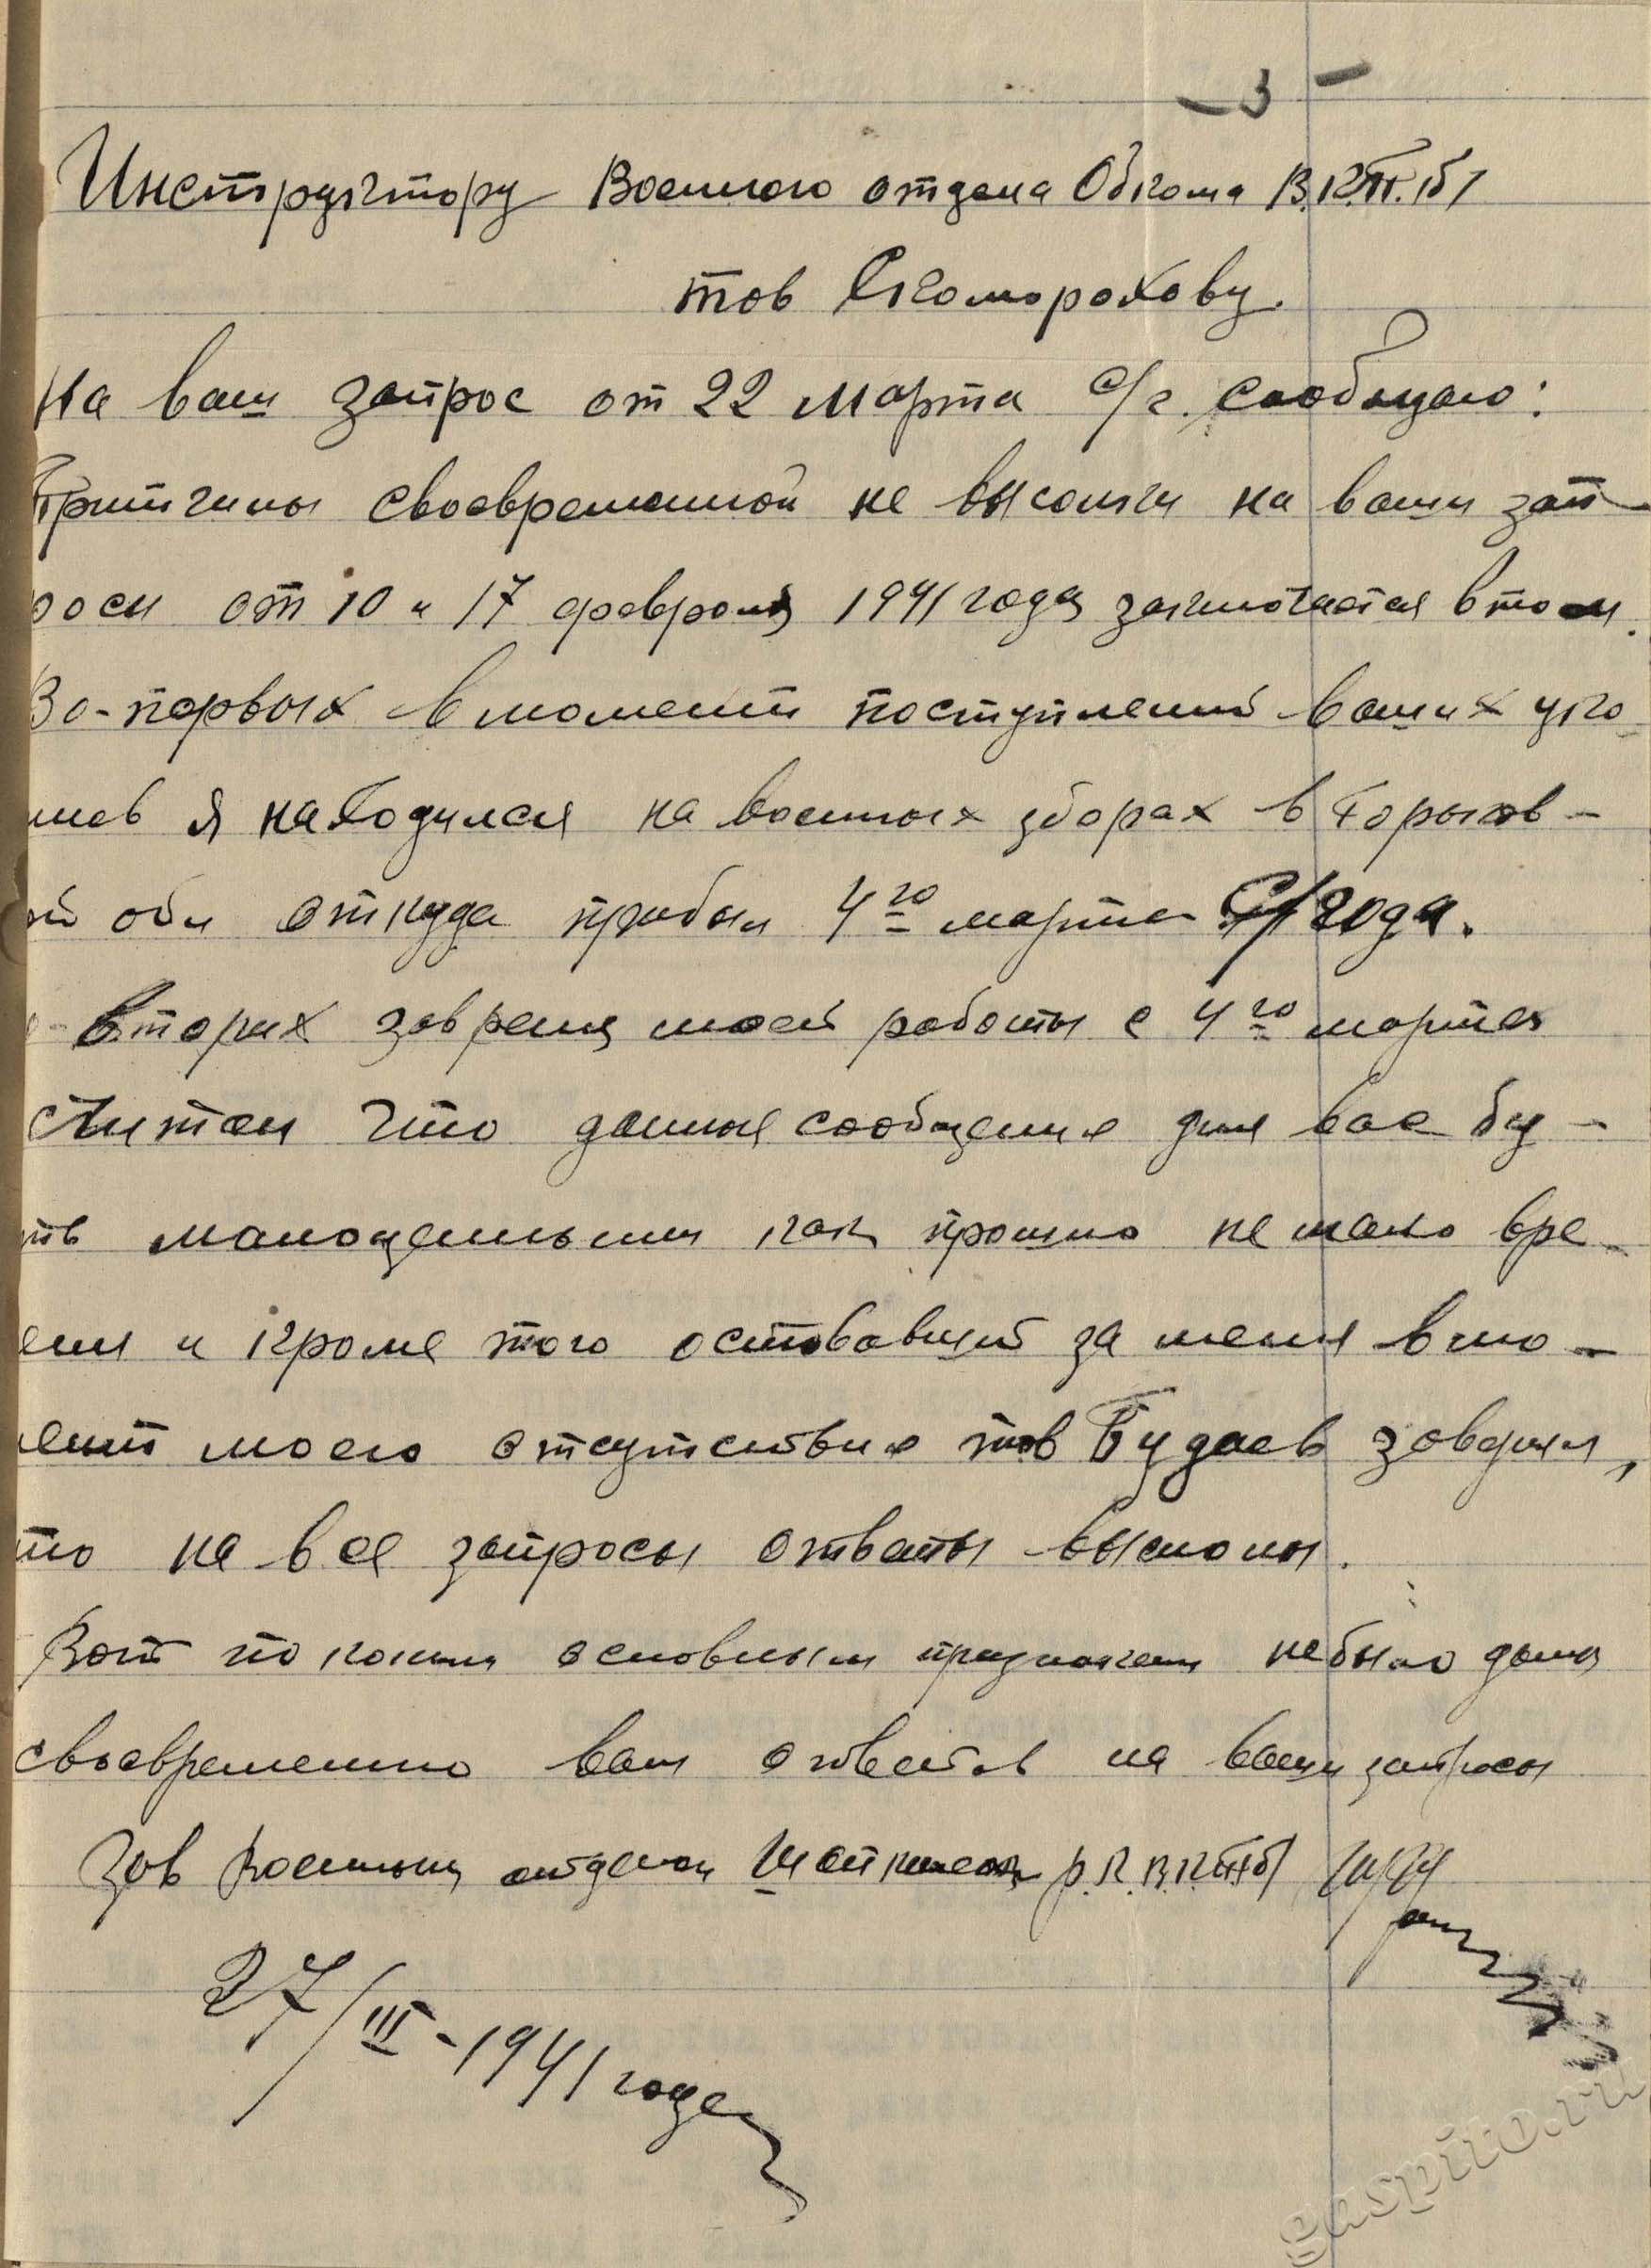 - 3 -
Инструктору Военного отдела Обкома В.К.П.(б)
тов Скоморохову.
На ваш запрос от 22 марта с/г. сообщаю:
Притчины своевременной не высылки на ваши зап-
росы от 10 и 17 февраля 1941 года заключается в том.
Во-первых в момент поступлений ваших ука
я находился на военных сборах в Горьков-
ой обл откуда прибыл 4го марта с/года.
-вторых за время моей работы с 4го марта
считал что данные сообщения для вас бу-
ть малоценными как прошло не мало вре-
ени и кроме того остававший за меня в мо-
ент моего отсутствие тов Будаев заверил,
то на все запросы ответы высланы.
Вот по каким основным признакам не было дано
своевременно вам ответов на ваши запросы
Зав Военным отделом р.К.В.К.П(б)
27/III-1941 года
gaspito.ru